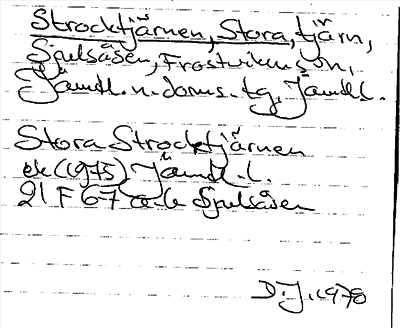 Strocktjärnen, Stora, tjärn,
Sjulsåsen, Frostvikens sn,
Jämtl. n. doms. tg, Jämtl l.
Stora Strocktjärnen
ek (1975) Jämtl. l.
21 F 67 Sjulsåsen
D.J. 1978